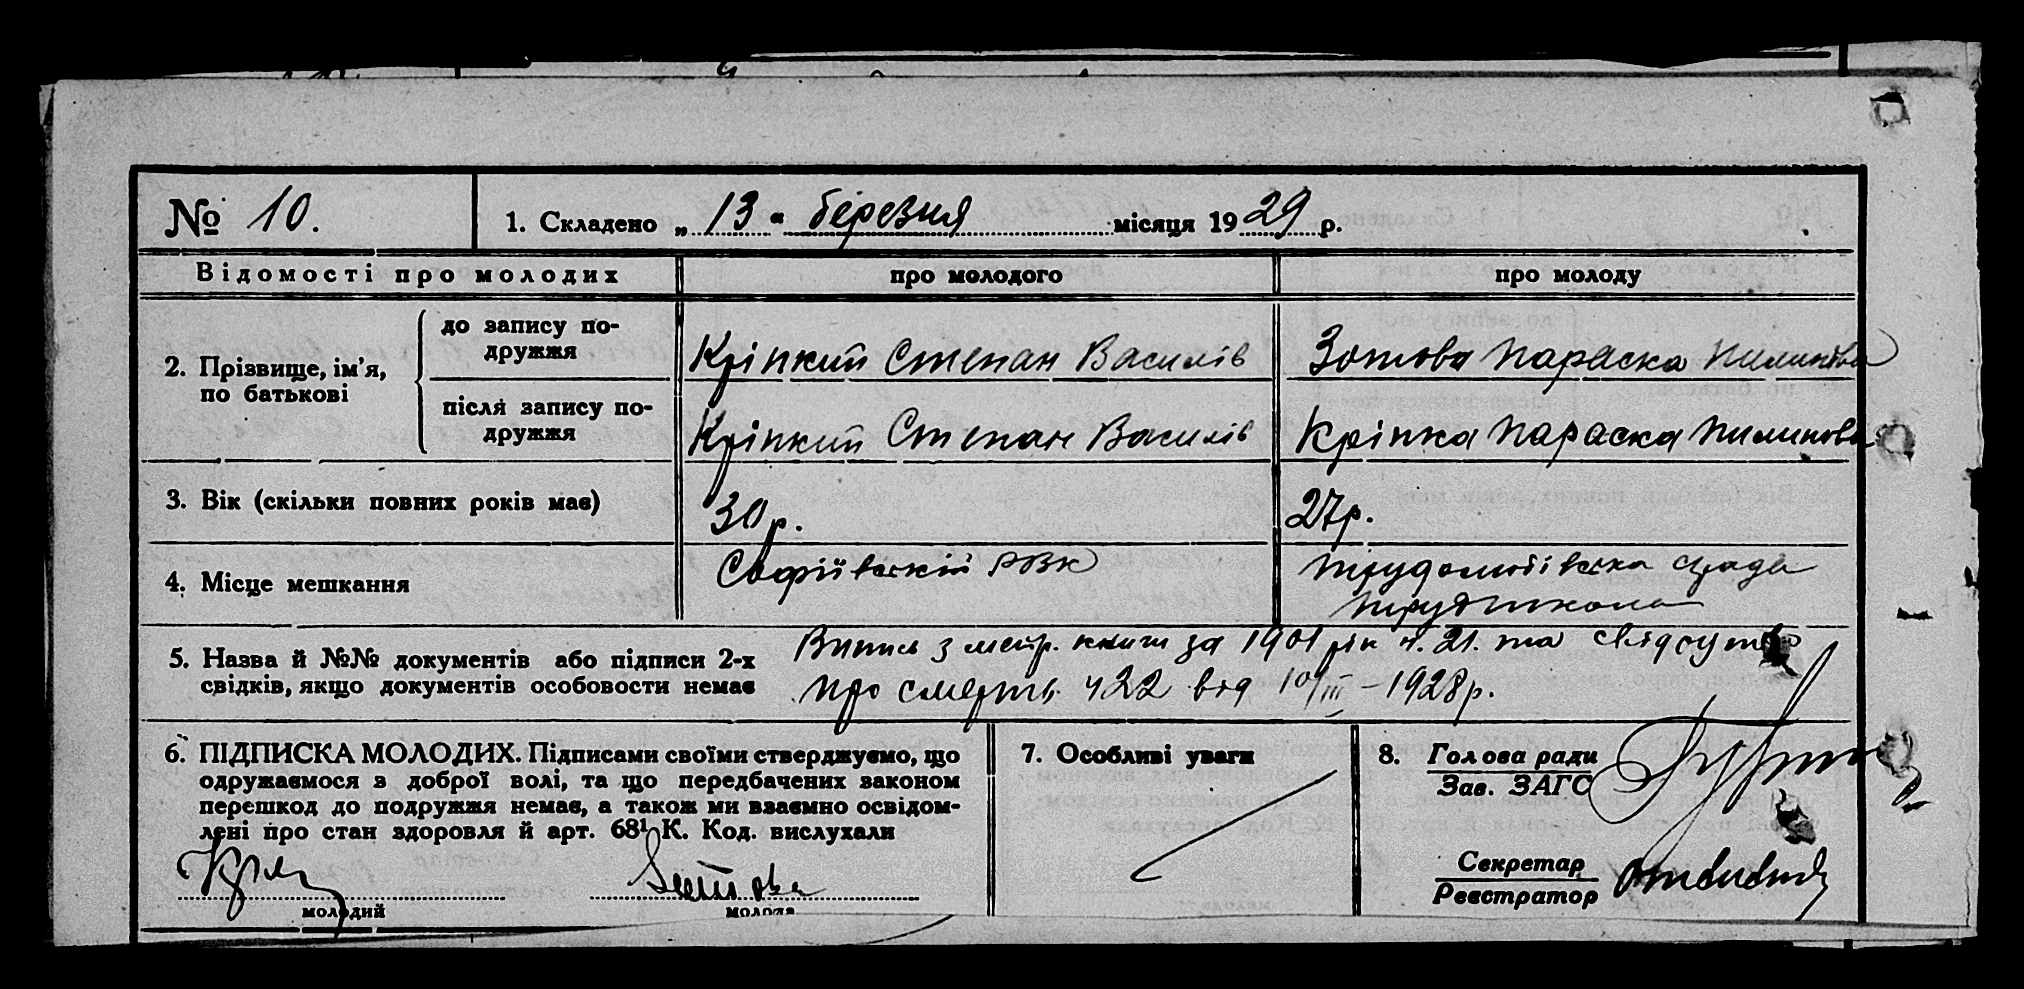 № 10.
1. Складено „ 13 “ березня місяця 1929 р.
Відомості про молодих
про молодого
про молоду
2. Прізвище, ім’я, по батькові
до запису по-
дружжя
Кріпкий Степан Василів
Зотова Параска Пилипова
після запису по-
дружжя
Кріпкий Степан Василів
Кріпка Параска Пилипова
3. Вік (скільки повних років має)
30 р.
27 р.
4. Місце мешкання
Софіївський РВК
Трудолюбівська срада
Трудшкола
5. Назва й №№ документів або підписи 2-х
свідків, якщо документів особовости немає
Випись з метр. книги за 1901 рік ч. 21. та
про смерть ч 22 від 10/III – 1928 р.
6. ПІДПИСКА МОЛОДИХ. Підписами своїми стверджуємо, що
одружаємося з доброї волі, та що передбачених законом
перешкод до подружжя немає, а також ми взаємно освідом-
лені про стан здоровля й арт. 68¹ К. Код. вислухали
молодий
Зотова
молода
7. Особливі уваги
8. Голова ради
Зав. ЗАГС
Секретар
Реєстратор